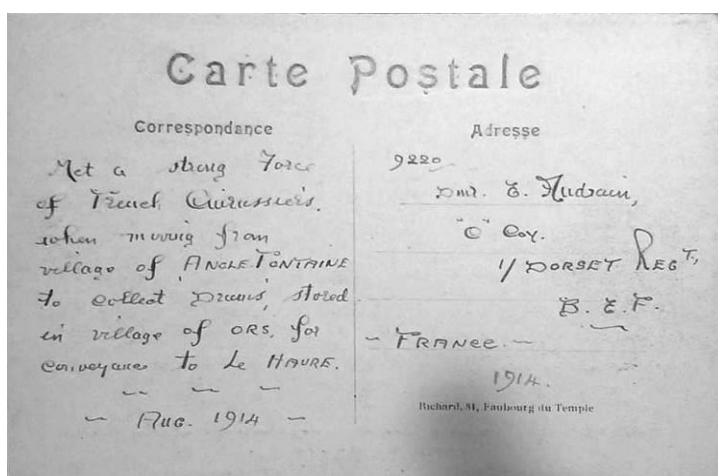 Carte Postale
Correspondance
Met a strong Force
of French Cuirassiers,
when moving from
village of ANGLE FONTAINE
to collect Drums, stored
in village of ORS, for
conveyance to Le HAVRE.
- AUG. 1914 -
Adresse
9220
Dmr. E. Audrain,
"C" Coy.
1/ DORSET REGT,
B. E. F.
- FRANCE. -
1914.
Richard, 84, Faubourg du Temple